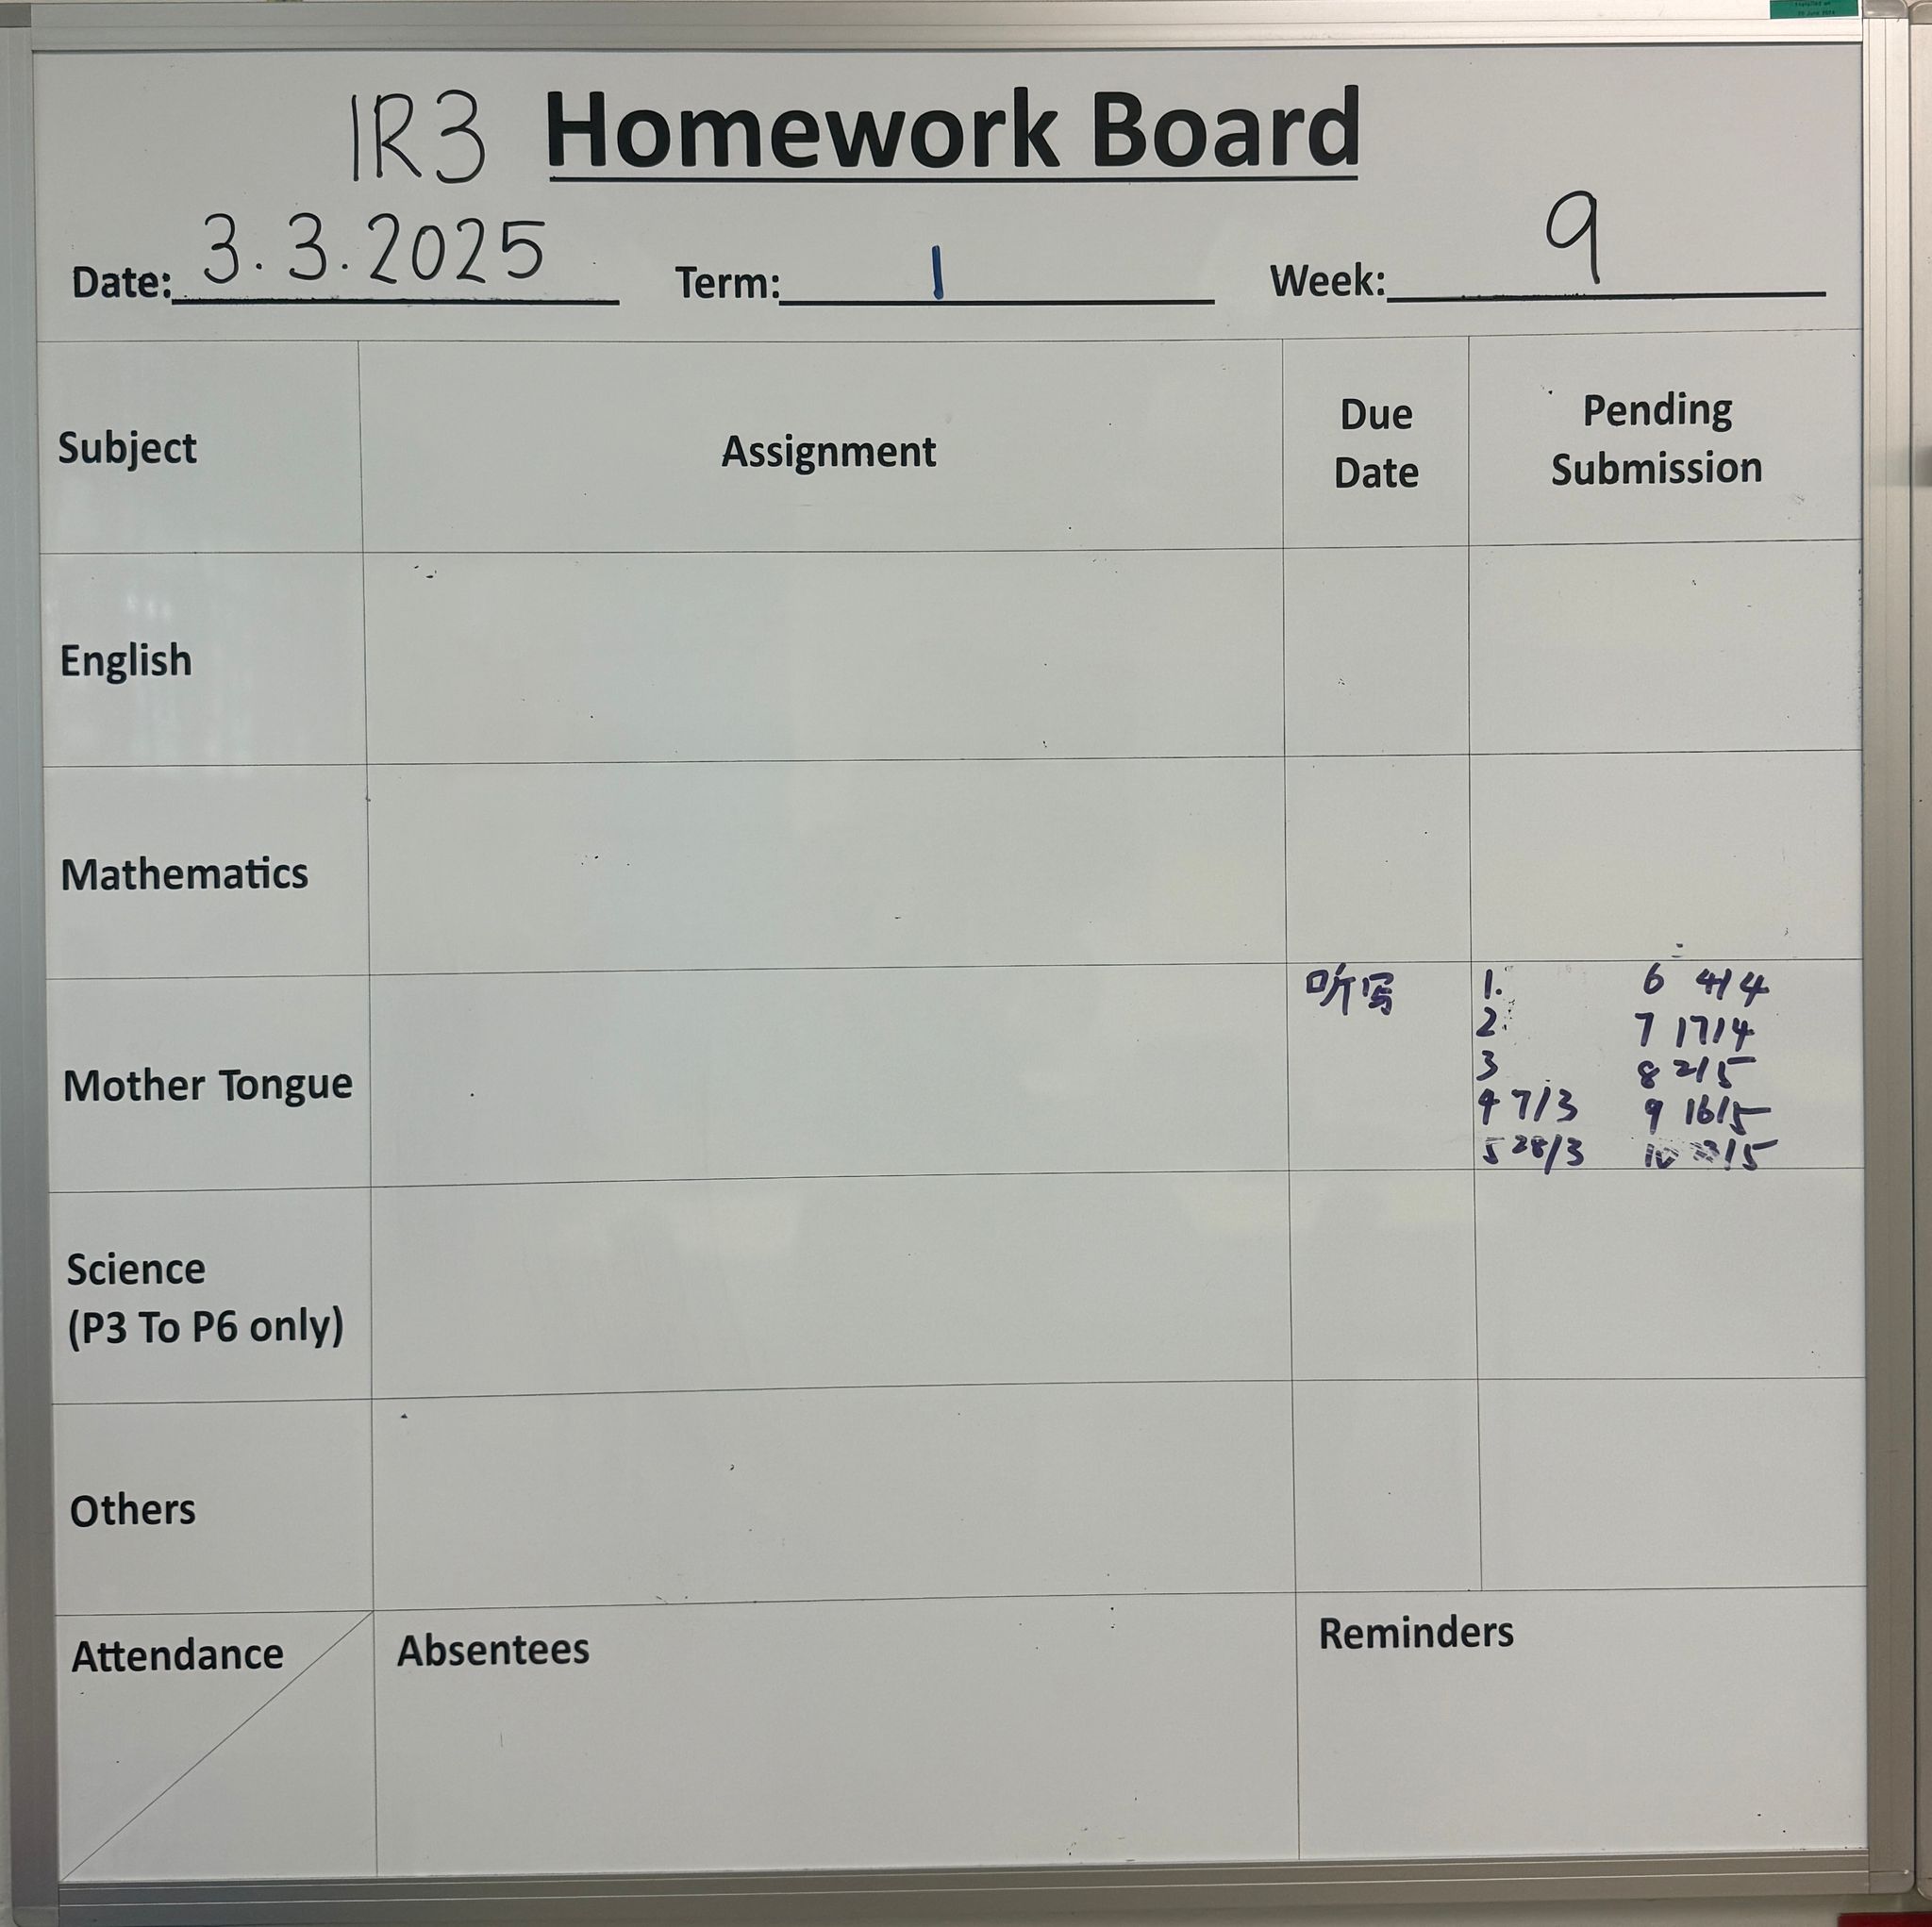 1R3 Homework Board
Date: 3.3.2025 Term: 1 Week: 9
Subject Assignment Due Date Pending Submission
English
Mathematics
Mother Tongue
听写
1. 6 4/4
2. 7 17/4
3 8 2/5
4 7/3 9 16/5
5 28/3 10 /5
Science
(P3 To P6 only)
Others
Attendance Absentees Reminders